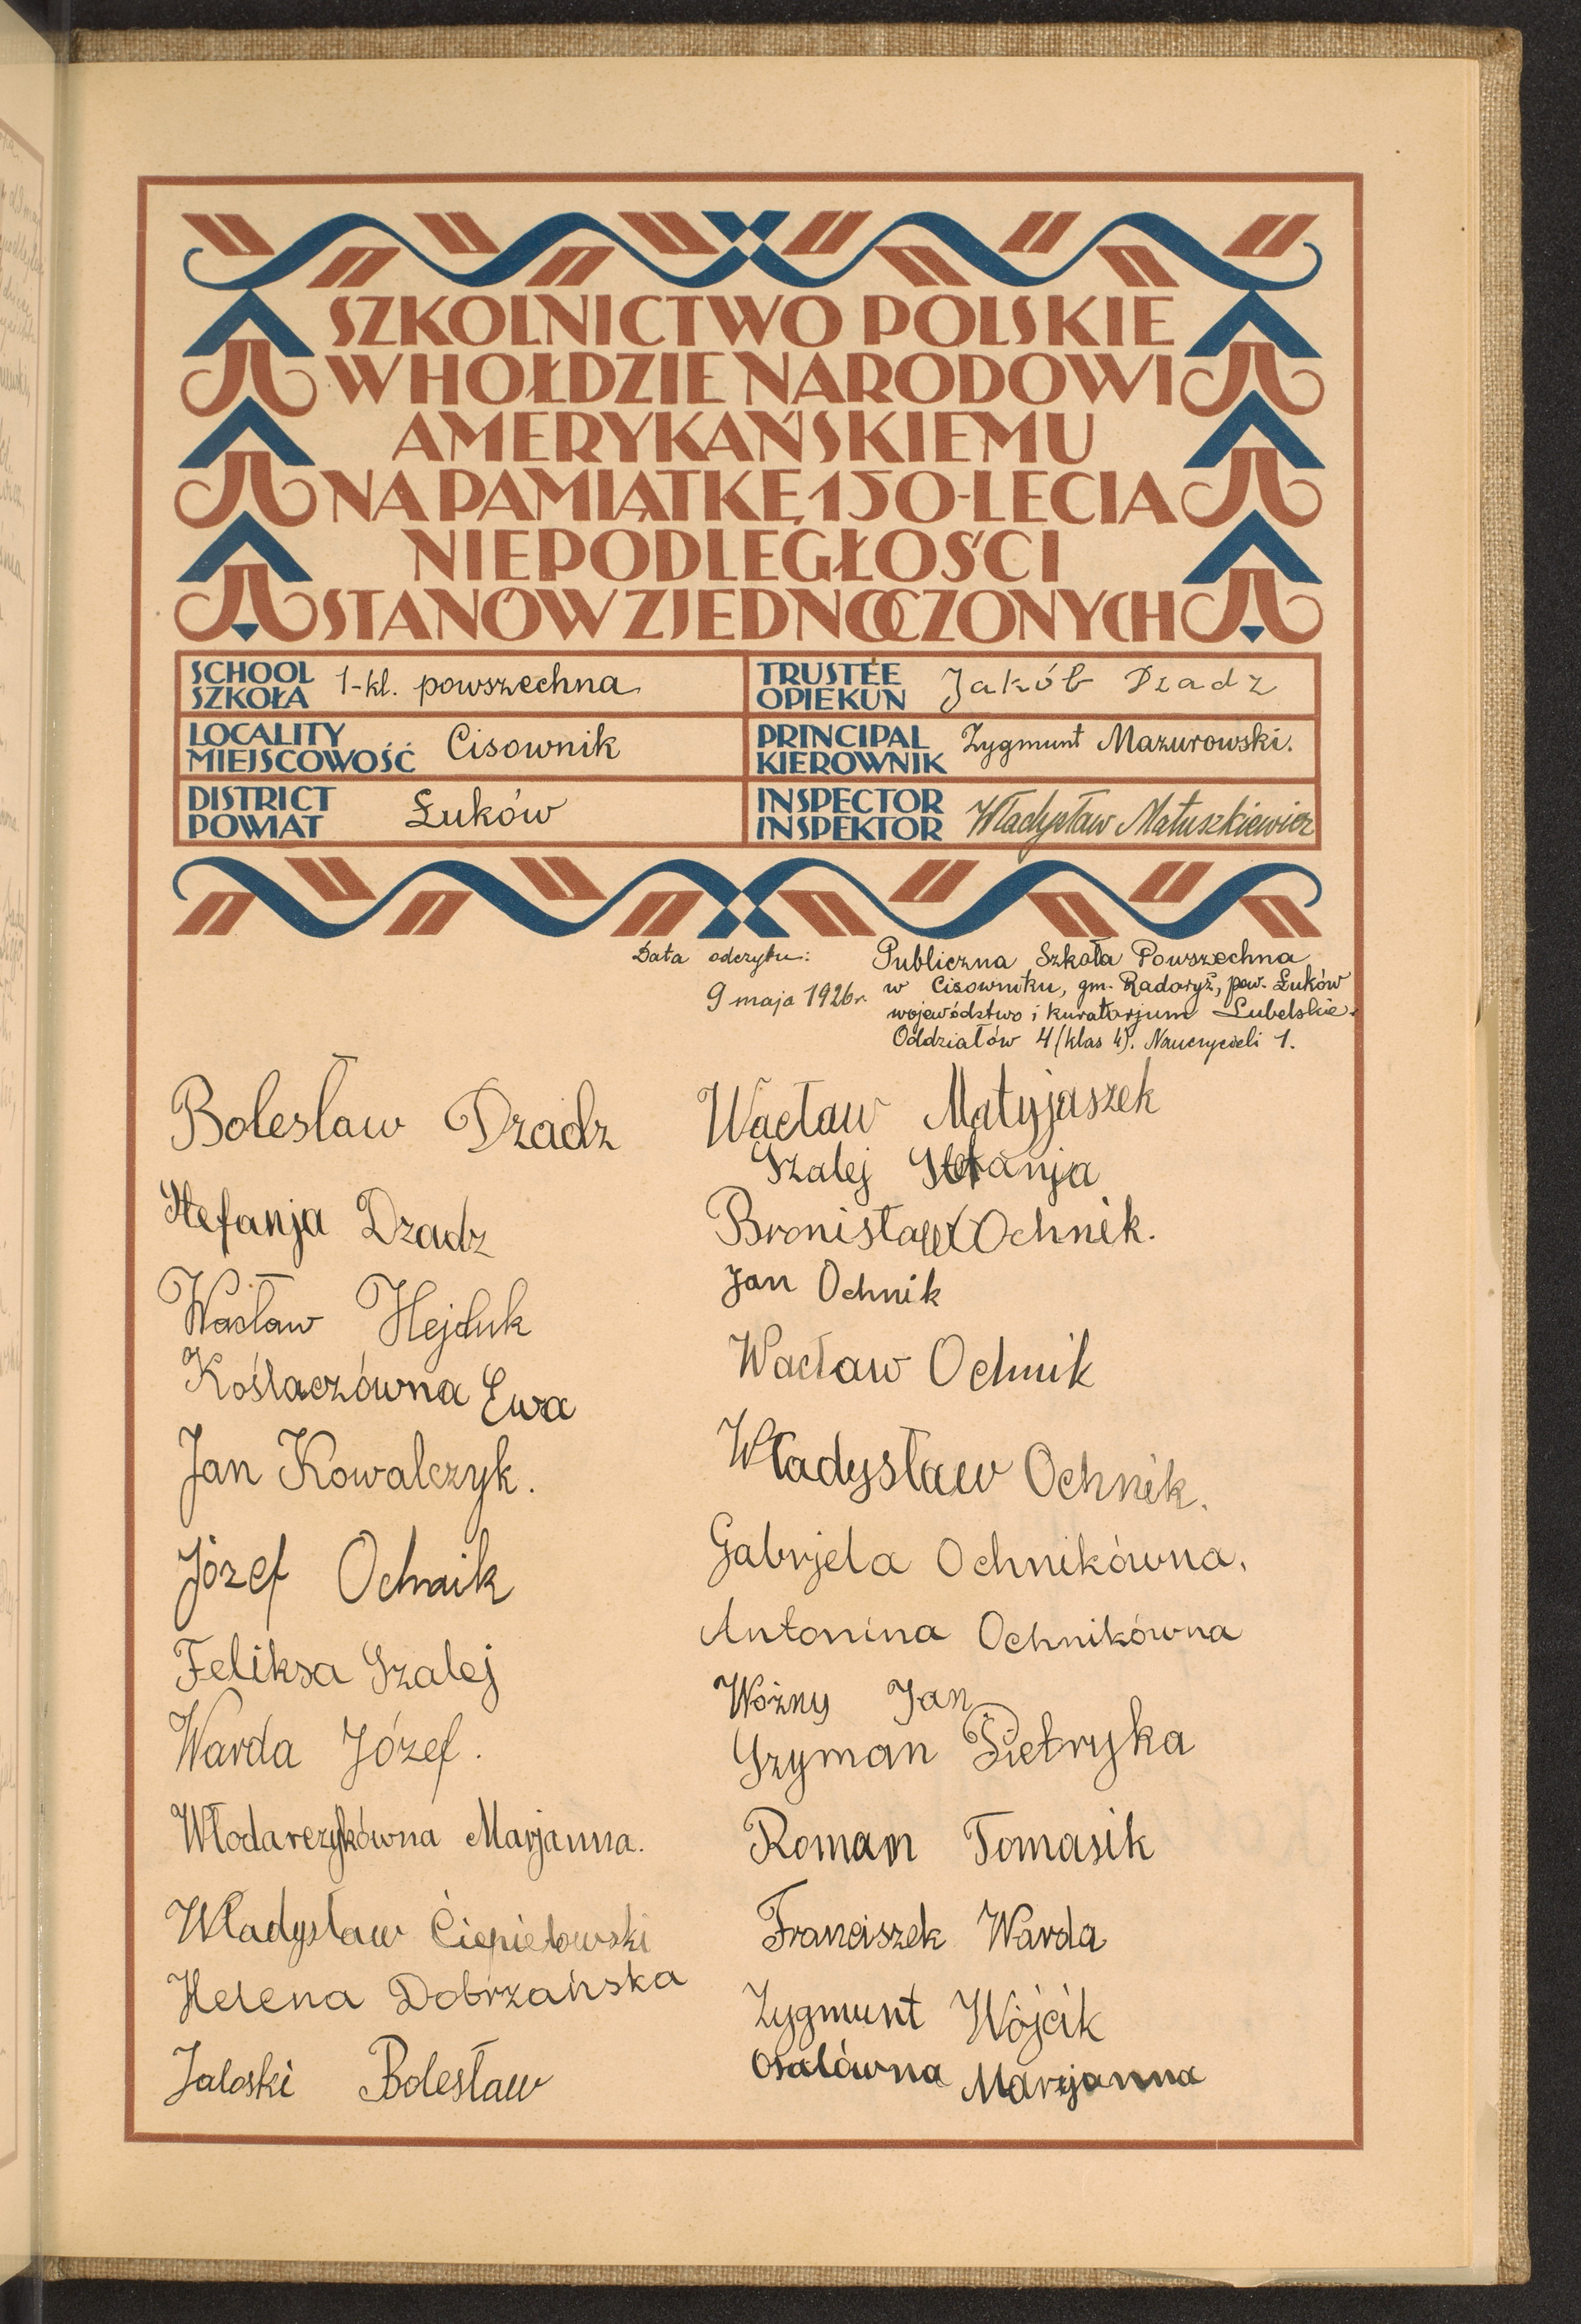 SZKOLNICTWO POLSKIE
W HOŁDZIE NARODOWI
AMERYKAŃSKIEMU
NA PAMIĄTKĘ 150-LECIA
NIEPODLEGŁOŚCI
STANÓW ZJEDNOCZONYCH
SCHOOL
SZKOŁA
1-kl. powszechna
TRUSTEE
OPIEKUN
Jakób Dzadz
LOCALITY
MIEJSCOWOŚĆ
Cisownik
PRINCIPAL
KIEROWNIK
Zygmunt Mazurowski.
DISTRICT
POWIAT
Łuków
INSPECTOR
INSPEKTOR
Władysław Matuszkiewicz
Data odczytu:
9 maja 1926r.
Publiczna Szkoła Powszechna
w Cisowniku, gm. Radoryż, pow. Łuków
województwo i kuratorjum Lubelskie.
Oddziałów 4 (klas 4). Nauczycieli 1.
Bolesław Dzadz
Stefanja Dzadz
Wacław Hejduk
Koślaczówna Ewa
Jan Kowalczyk.
Józef Ochnik
Feliksa Szalej
Warda Józef.
Włodarczykówna Marjanna.
Władysław Ciepielowski
Helena Dobrzańska
Jaloski Bolesław
Wacław Matyjaszek
Szalej Stefanja
Bronisław Ochnik.
Jan Ochnik
Wacław Ochnik
Władysław Ochnik.
Gabrjela Ochnikówna.
Antonina Ochnikówna
Woźny Jan
Szyman Pietryka
Roman Tomasik
Franciszek Warda
Zygmunt Wójcik
Osalówna Marzjanna